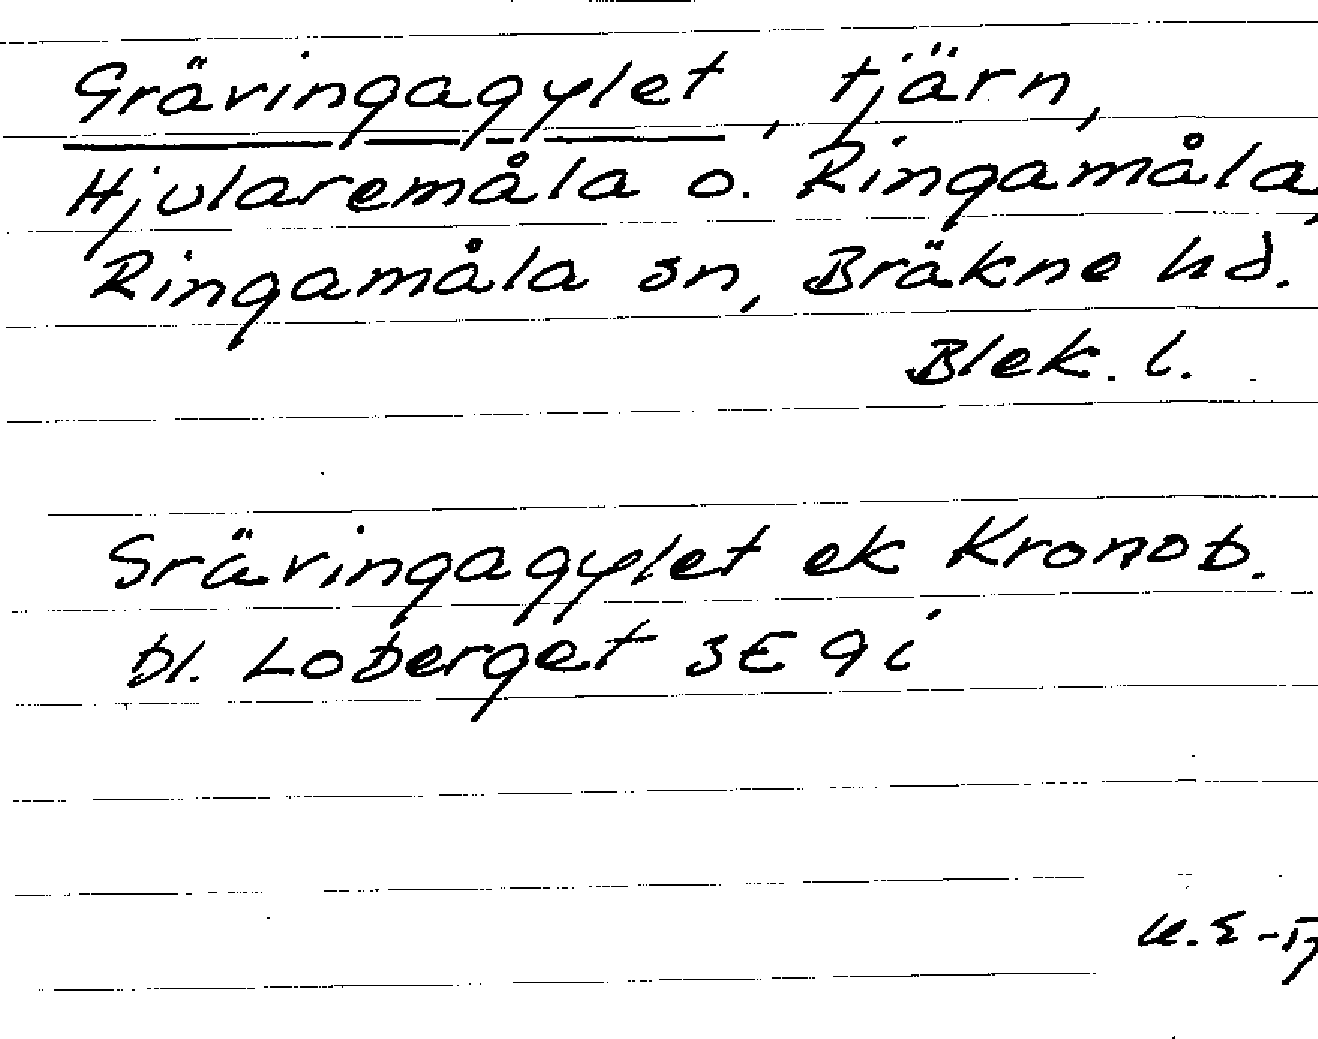 Grävingagylet, tjärn,
Hjularemåla o. Ringamåla,
Ringamåla sn, Bräkne hd.
Blek. l.
Grävingagylet ek Kronob.
bl. Loberget SE 9 i